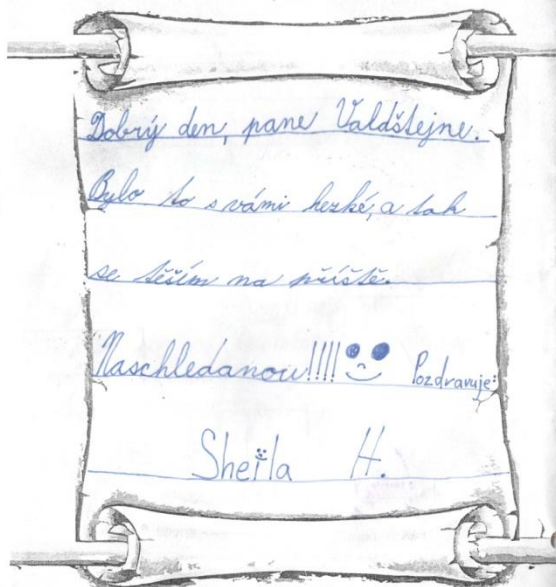 Dobrý den, pane Valdštejne.
Bylo to s vámi hezké, a tak
se těším na příště.
Naschledanou!!!! Pozdravuje:
Sheila H.